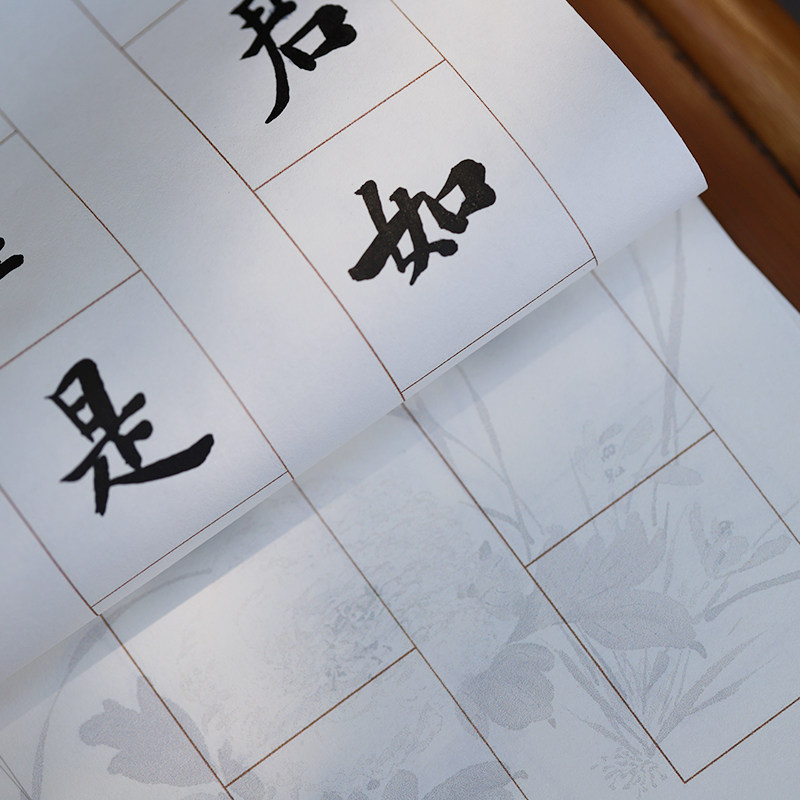 君如
是